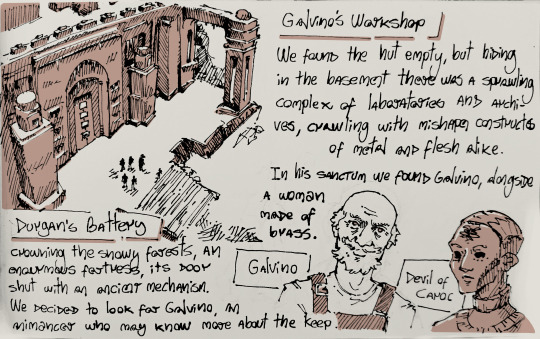 Galvino's Workshop
We found the hut empty, but hiding
in the basement there was a sprawling
complex of laboratories and archi-
ves, crawling with mishapen constructs
of metal and flesh alike.
In his sanctum we found Galvino, alongside
a woman
made of
brass.
Galvino
Devil of
Caroc
Durgan's Battery
crowning the snowy forests, an
enourmous fortress, its door
shut with an ancient mechanism.
We decided to look for Galvino, an
animancer who may know more about the keep.